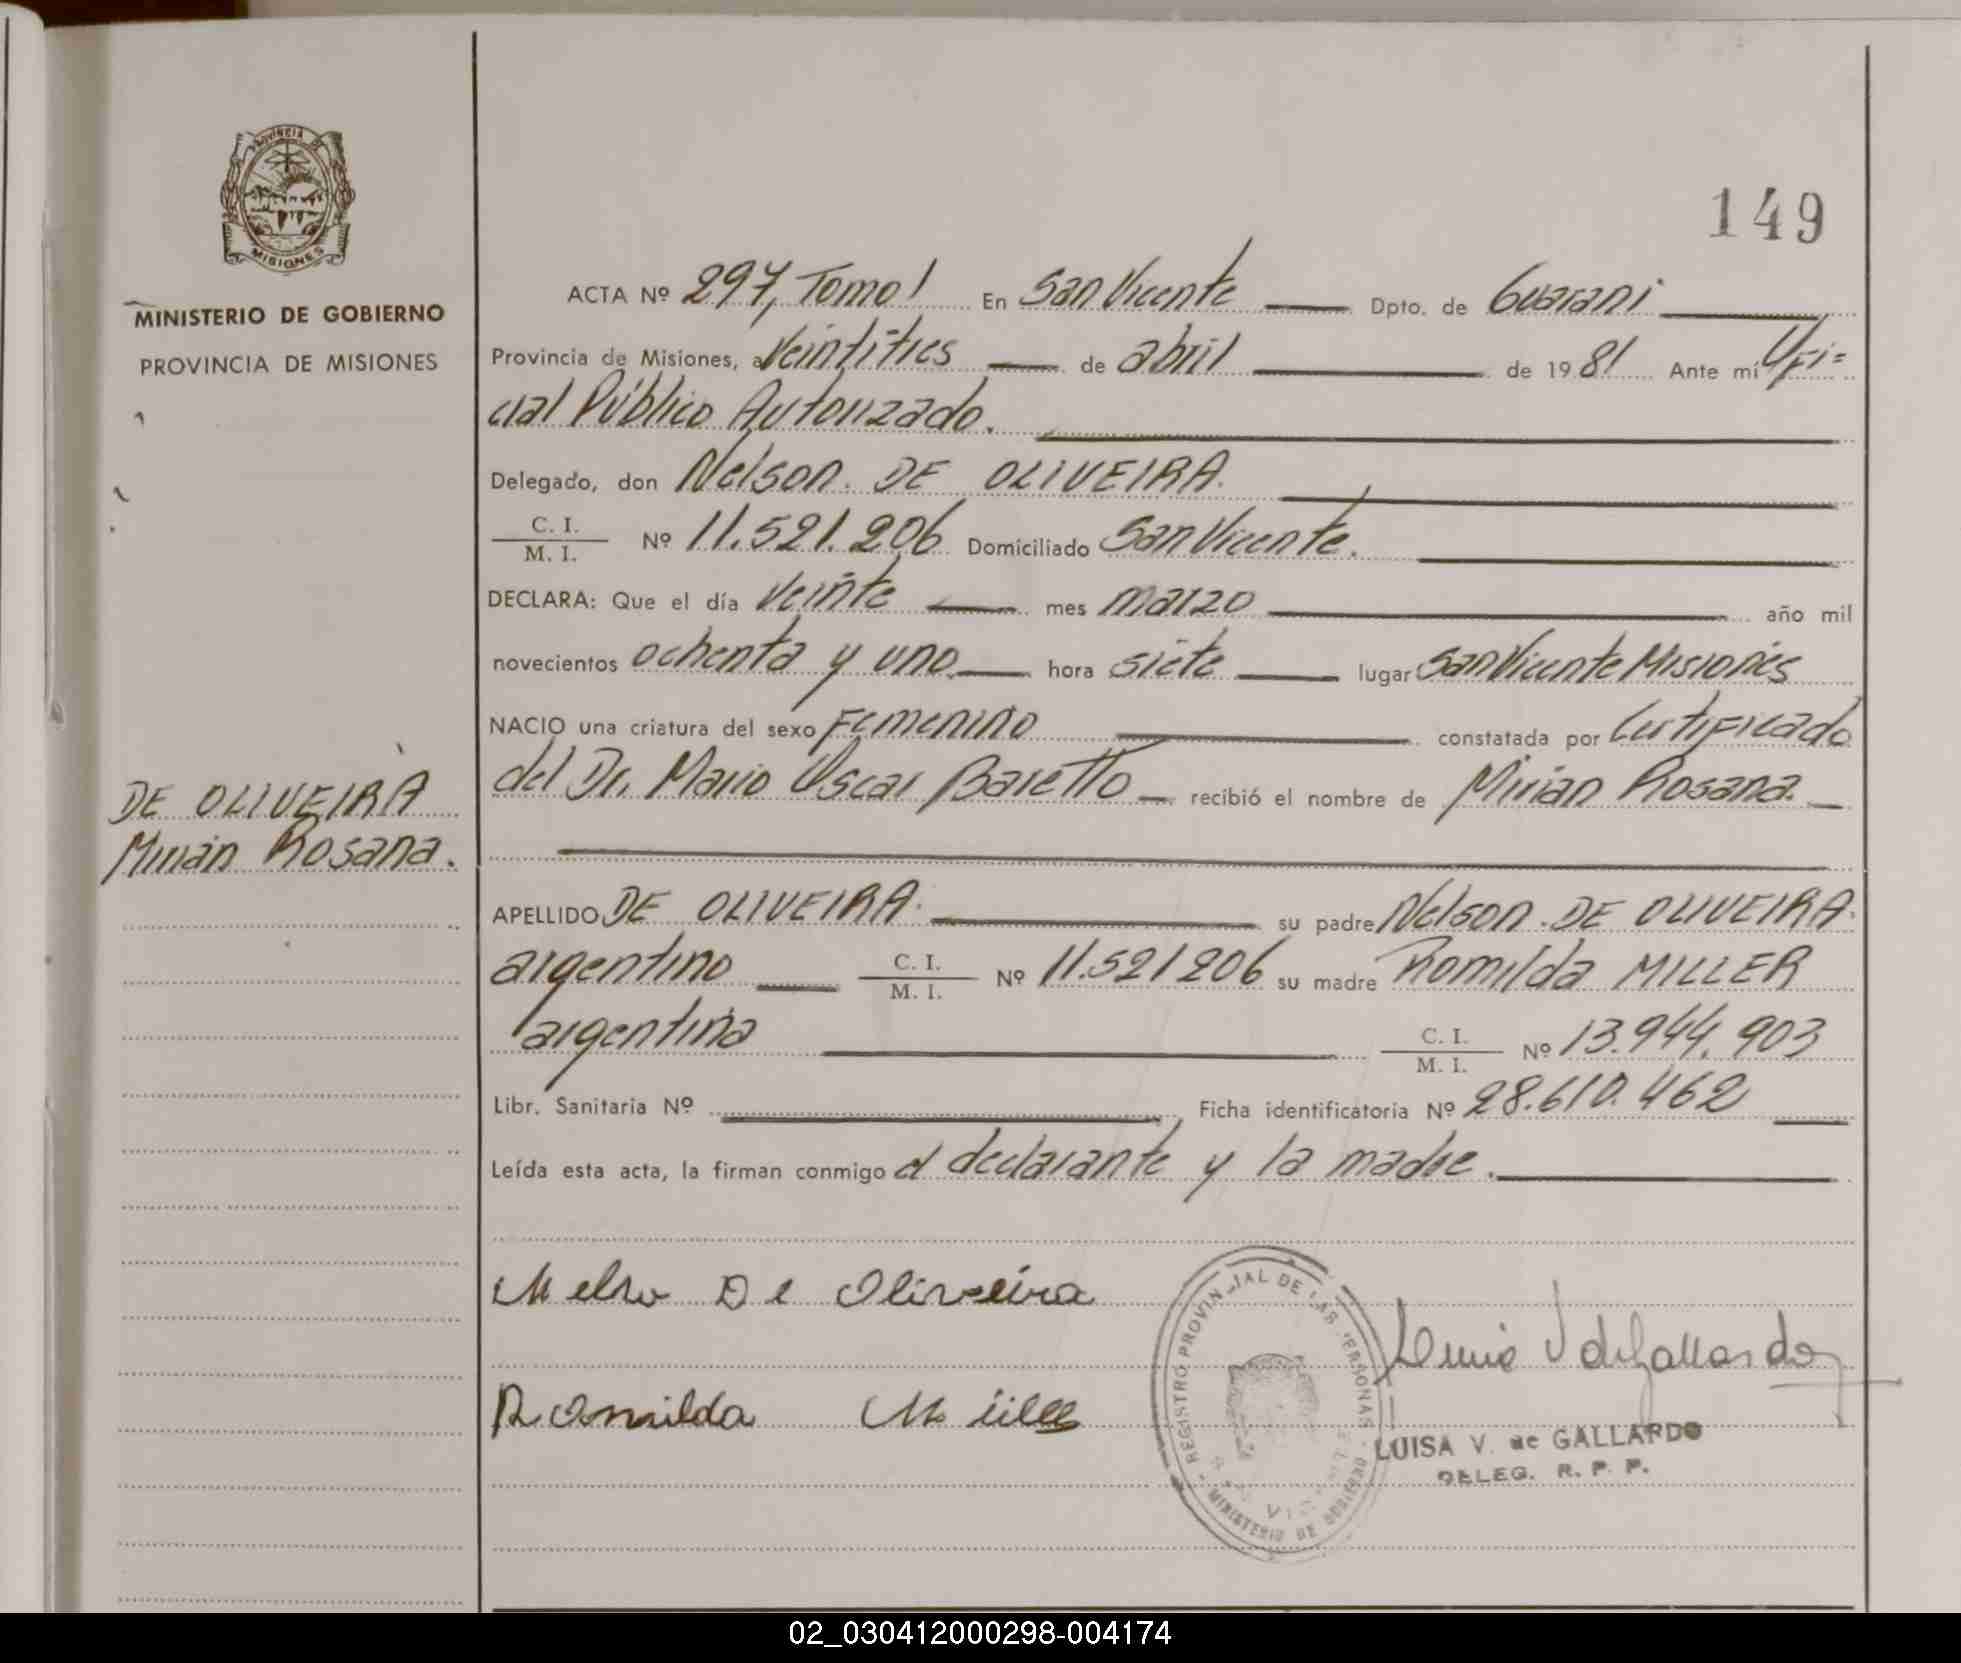 PROVINCIA DE
MISIONES
MINISTERIO DE GOBIERNO
PROVINCIA DE MISIONES
149
ACTA Nº 297, Tomo I En San Vicente Dpto. de Guarani
Provincia de Misiones, a Veintitres de abril de 1981 Ante mí Ofi=
cial Público Autorizado.
Delegado, don Nelson. DE OLIVEIRA.
C. I. / M. I. Nº 11.521.206 Domiciliado San Vicente.
DECLARA: Que el día Veinte mes marzo año mil
novecientos ochenta y uno hora siete lugar San Vicente Misiones
NACIO una criatura del sexo Femenino constatada por Certificado
del Dr. Mario Oscar Baretto recibió el nombre de Mirian Rosana.
DE OLIVEIRA
Mirian Rosana.
APELLIDO DE OLIVEIRA. su padre Nelson. DE OLIVEIRA.
argentino C. I. / M. I. Nº 11.521206 su madre Romilda MILLER
argentina C. I. / M. I. Nº 13.944.903
Libr. Sanitaria Nº Ficha identificatoria Nº 28.610.462
Leída esta acta, la firman conmigo el declarante y la madre.
Nelso De Oliveira
Romilda Miller
REGISTRO PROVINCIAL DE LAS PERSONAS
MINISTERIO DE GOBIERNO
LUISA V. de GALLARDO
DELEG. R. P. P.
02_030412000298-004174